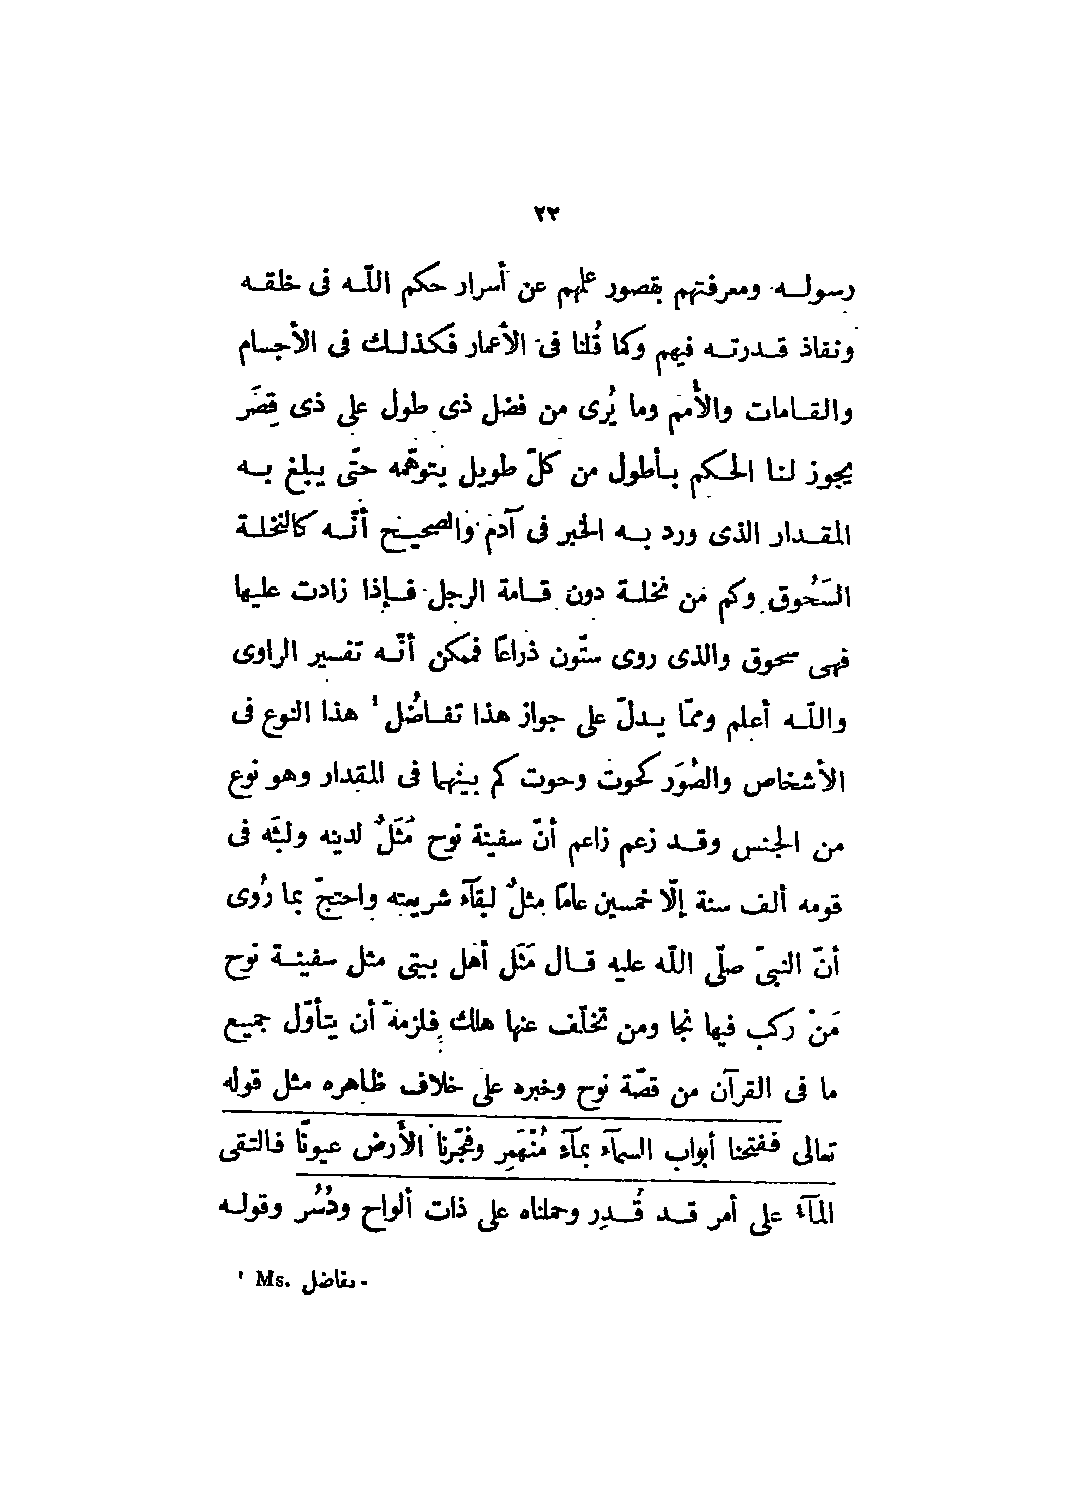 ٢٢
رسولـه ومعرفتهم بقصور علمهم عن أسرار حكم اللّـه فى خلقـه
ونفاذ قـدرتـه فيهم وكما قُلنا فى الأعمار فكذلـك فى الأجسام
والقـامات والأمم وما يُرى من فضل ذى طول على ذى قِصَر
يجوز لنـا الحـكم بـأطول من كلّ طويل يتوهّمه حتّى يبلغ بـه
المقـدار الذى ورد بـه الخبر فى آدم والصحيـح أنّـه كالنخلـة
السَحُوق وكم من نخلـة دون قـامة الرجل فـإذا زادت عليها
فهى سحوق والذى روى ستّون ذراعًا فممكن أنّـه تفسير الراوى
واللّـه أعلم وممّا يـدلّ على جواز هذا تفـاضُل ١ هذا النوع فى
الأشخاص والصُوَر كحوت وحوت كم بينهما فى المقدار وهو نوع
من الجنس وقـد زعم زاعم أنّ سفينة نوح مَثَلٌ لدينه ولبثَه فى
قومه ألف سنة إلّا خمسين عامًا مثلٌ لبقآء شريعته واحتجّ بما رُوى
أنّ النبىّ صلّى اللّه عليه قـال مَثَل أهل بيتى مثل سفينـة نوح
مَنْ ركب فيها نجا ومن تخلّف عنها هلك فلزمه أن يتأوّل جميع
ما فى القرآن من قصّة نوح وخبره على خلاف ظاهره مثل قوله
تعالى ففتحنا أبواب السمآء بمآء مُنْهَمِر وفجّرنا الأرض عيونًا فالتـقى
المآء على أمر قـد قُـدِر وحملناه على ذات ألواح ودُسُر وقولـه
١ Ms. تفاضل -